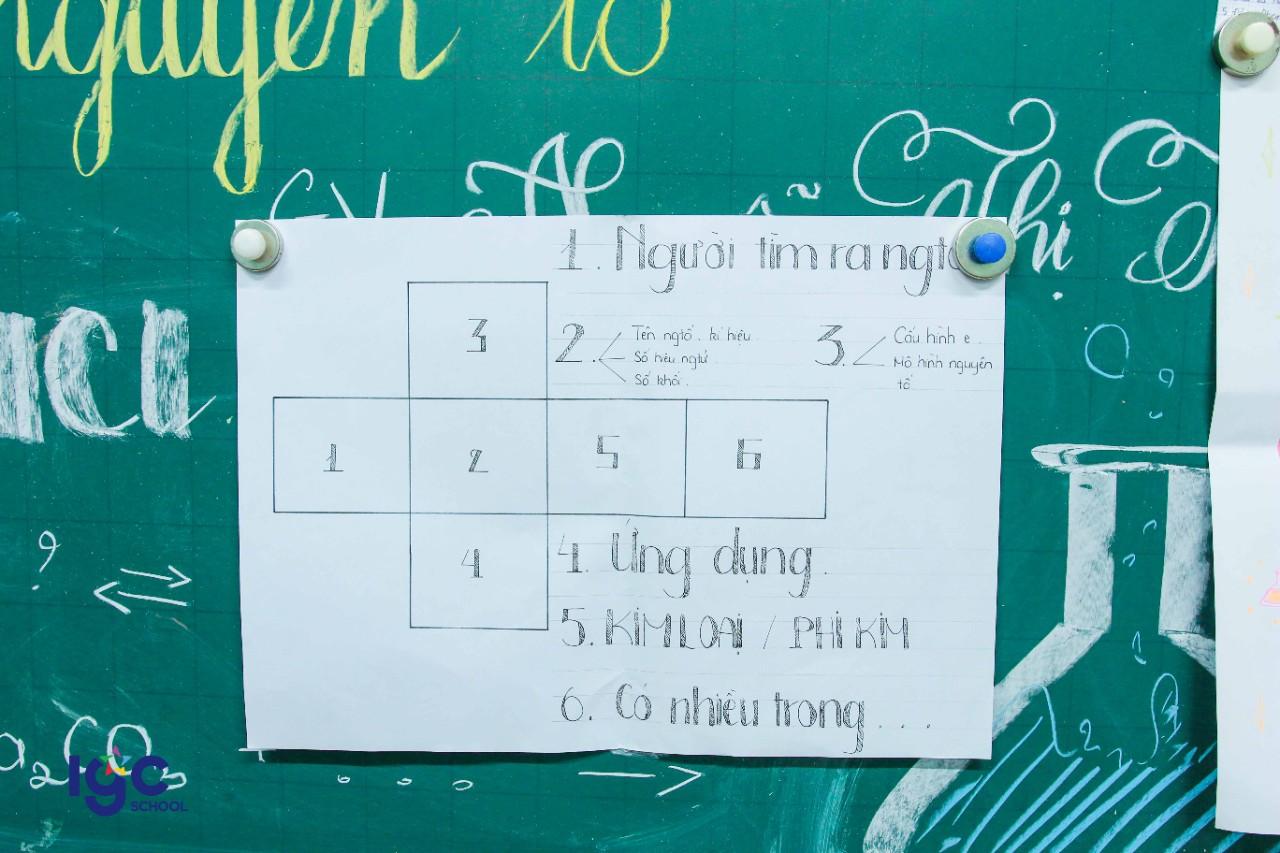 nguyên tố
Thị
1. Người tìm ra ngtố
3
2. Tên ngtố, kí hiệu
Số hiệu ngtử
Số khối.
3. Cấu hình e.
Mô hình nguyên
tố
1 2 5 6
4
4. Ứng dụng.
5. KIM LOẠI / PHI KIM
6. Có nhiều trong ...
?
IGC
SCHOOL